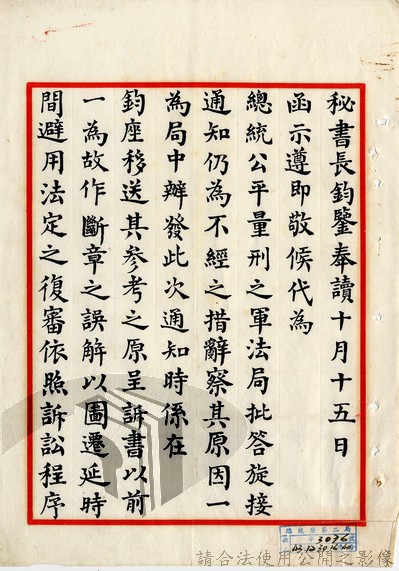 秘書長鈞鑒奉讀十月十五日
函示遵即敬候代為
總統公平量刑之軍法局批答旋接
通知仍為不經之措辭察其原因一
為局中辦發此次通知時係在
鈞座移送其參考之原呈訴書以前
一為故作斷章之誤解以圖遷延時
間避用法定之復審依照訴訟程序
總統府第二局
3076
請合法使用公開之影像